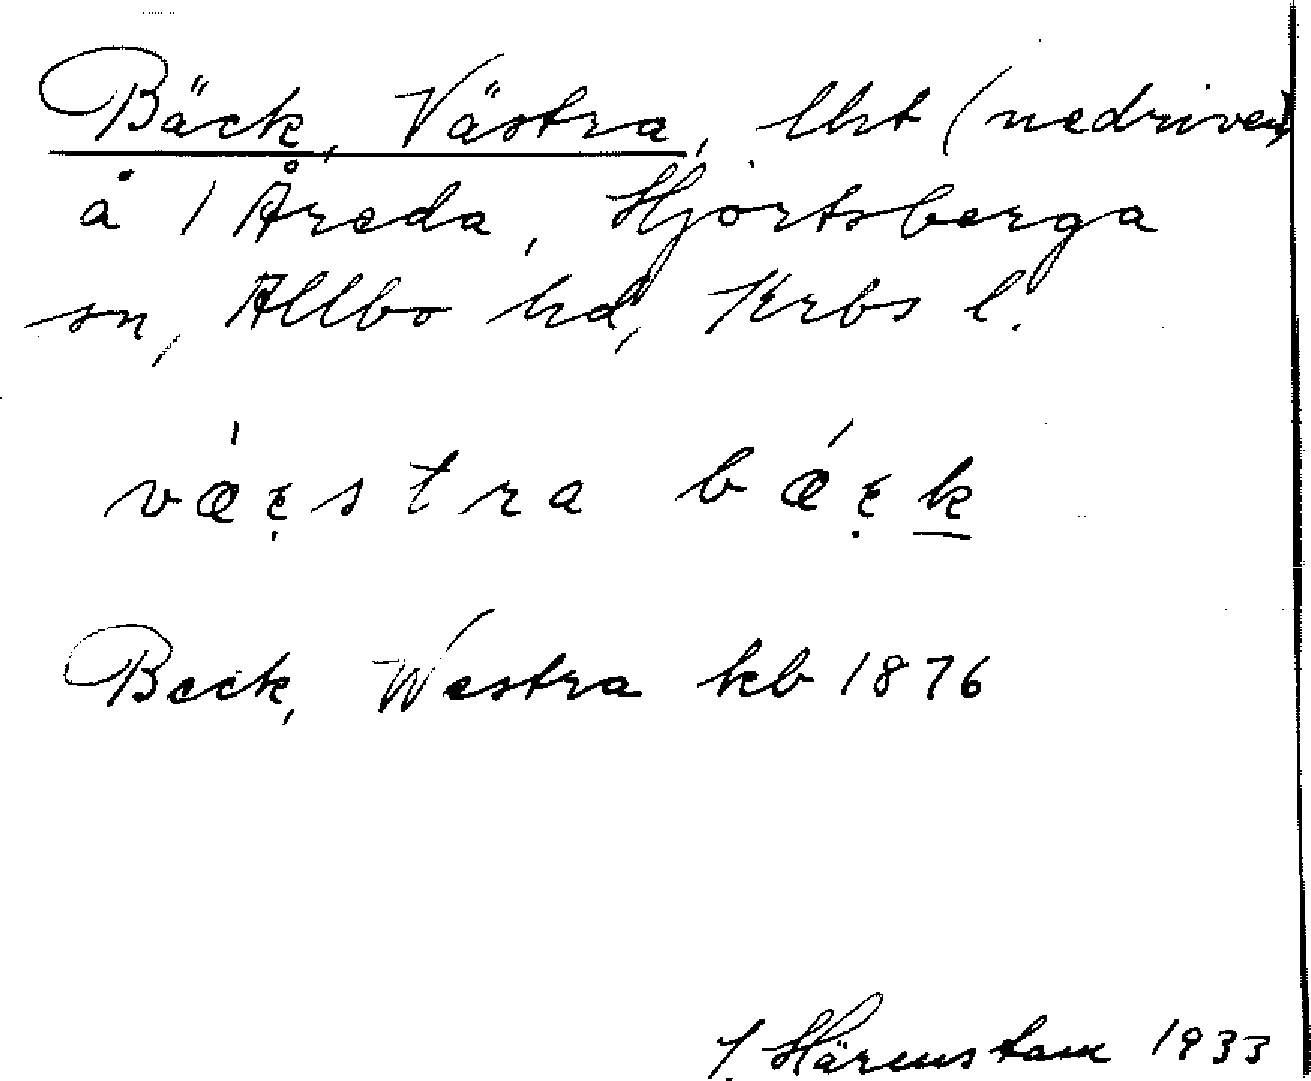 Bäck, Västra, lht (nedriven)
å 1 Åreda, Hjortsberga
sn, Allbo hd, Krbs l.
væ̀ɛ̣stra bǽɛ̣k̲
Beck, Westra kb 1876
J. Härenstam 1933